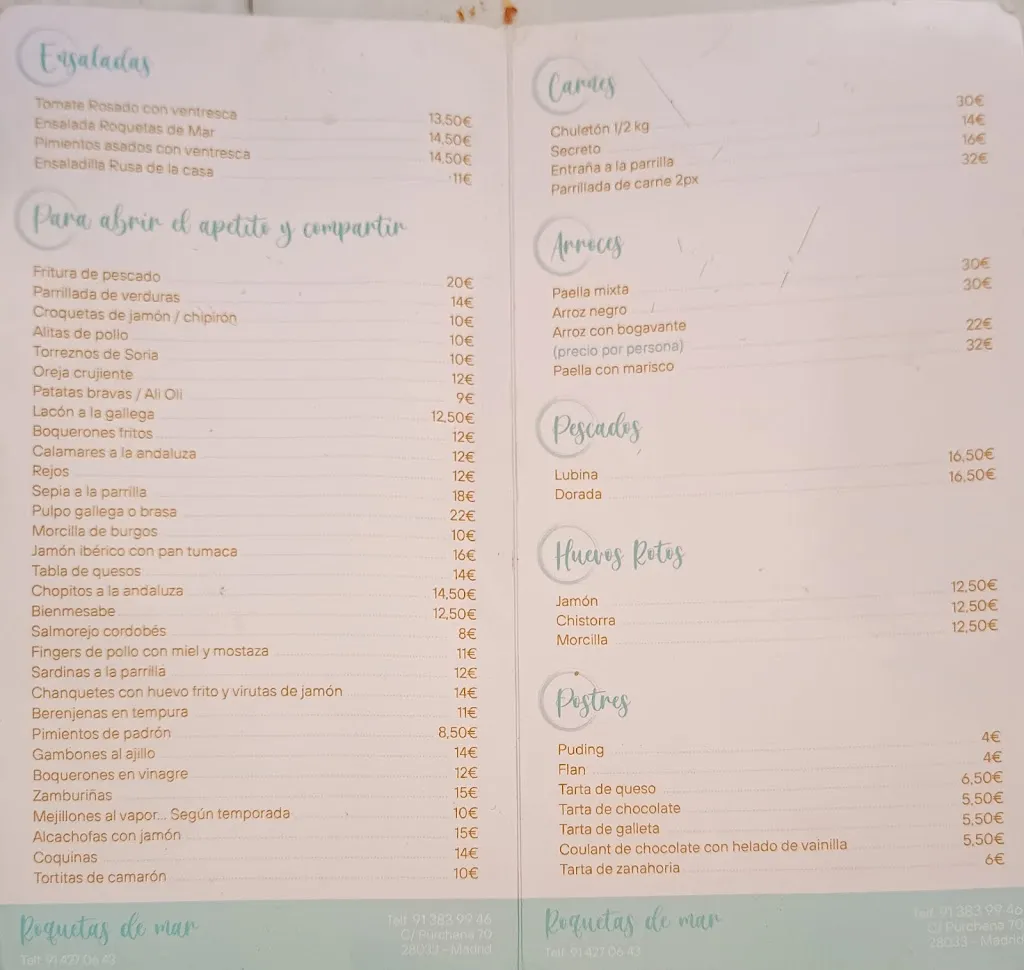 Ensaladas
Tomate Rosado con ventresca 13,50€
Ensalada Roquetas de Mar 14,50€
Pimientos asados con ventresca 14,50€
Ensaladilla Rusa de la casa 11€
Para abrir el apetito y compartir
Fritura de pescado 20€
Parrillada de verduras 14€
Croquetas de jamón / chipirón 10€
Alitas de pollo 10€
Torreznos de Soria 10€
Oreja crujiente 12€
Patatas bravas / Ali Oli 9€
Lacón a la gallega 12,50€
Boquerones fritos 12€
Calamares a la andaluza 12€
Rejos 12€
Sepia a la parrilla 18€
Pulpo gallega o brasa 22€
Morcilla de burgos 10€
Jamón ibérico con pan tumaca 16€
Tabla de quesos 14€
Chopitos a la andaluza 14,50€
Bienmesabe 12,50€
Salmorejo cordobés 8€
Fingers de pollo con miel y mostaza 11€
Sardinas a la parrilla 12€
Chanquetes con huevo frito y virutas de jamón 14€
Berenjenas en tempura 11€
Pimientos de padrón 8,50€
Gambones al ajillo 14€
Boquerones en vinagre 12€
Zamburiñas 15€
Mejillones al vapor... Según temporada 10€
Alcachofas con jamón 15€
Coquinas 14€
Tortitas de camarón 10€
Roquetas de mar
Telf. 91 427 06 43
Telf. 91 383 99 46
C/ Purchena 70
28033 - Madrid
Carnes
Chuletón 1/2 kg 30€
Secreto 14€
Entraña a la parrilla 16€
Parrillada de carne 2px 32€
Arroces
Paella mixta 30€
Arroz negro 30€
Arroz con bogavante
(precio por persona) 22€
Paella con marisco 32€
Pescados
Lubina 16,50€
Dorada 16,50€
Huevos Rotos
Jamón 12,50€
Chistorra 12,50€
Morcilla 12,50€
Postres
Puding 4€
Flan 4€
Tarta de queso 6,50€
Tarta de chocolate 5,50€
Tarta de galleta 5,50€
Coulant de chocolate con helado de vainilla 5,50€
Tarta de zanahoria 6€
Roquetas de mar
Telf. 91 427 06 43
Telf. 91 383 99 46
C/ Purchena 70
28033 - Madrid